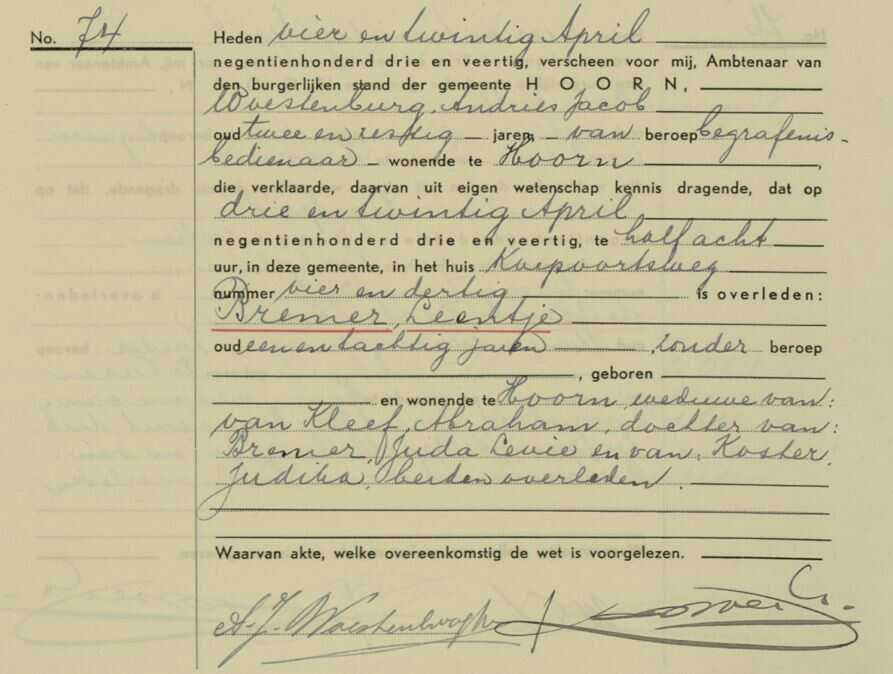 No. 74
Heden vier en twintig April
negentienhonderd drie en veertig, verscheen voor mij, Ambtenaar van
den burgerlijken stand der gemeente HOORN,
Woestenburg, Andries Jacob
oud twee en zestig jaren, van beroep begrafenis-
bedienaar wonende te Hoorn,
die verklaarde, daarvan uit eigen wetenschap kennis dragende, dat op
drie en twintig April
negentienhonderd drie en veertig, te half acht
uur, in deze gemeente, in het huis Koepoortsweg
nummer vier en dertig is overleden:
Bremer, Leentje
oud een en tachtig jaren, zonder beroep
, geboren
en wonende te Hoorn, weduwe van:
van Kleef, Abraham, dochter van:
Bremer, Juda Levie en van: Koster,
Juditha, beiden overleden.
Waarvan akte, welke overeenkomstig de wet is voorgelezen.
A. J. Woestenburgh